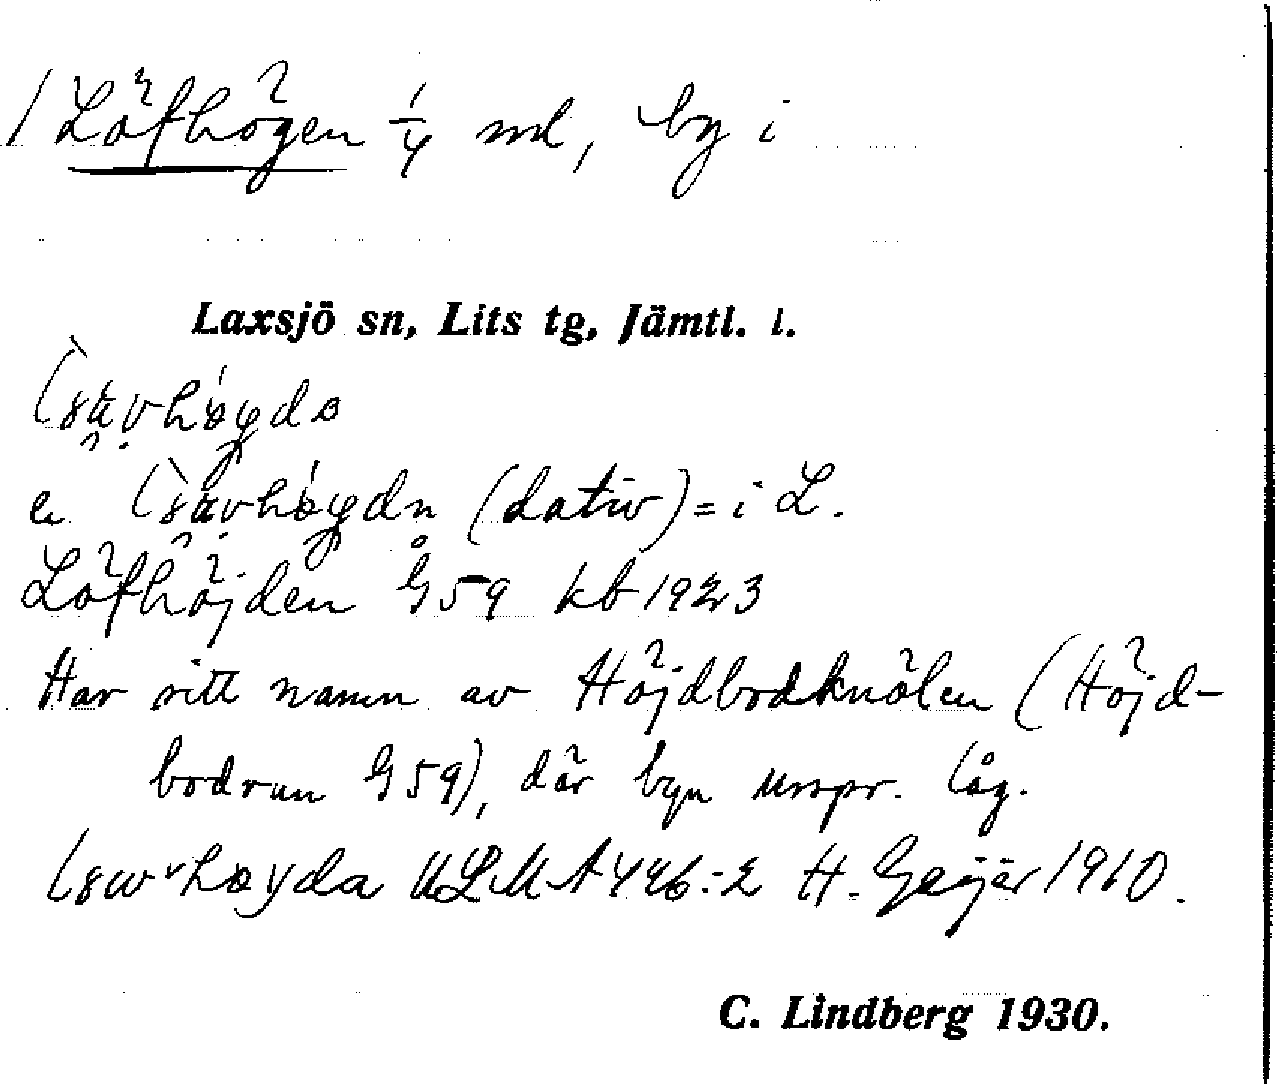 / Löfhögen 1/4 ml, by i
Laxsjö sn, Lits tg, Jämtl. l.
(dativ) = i L.
Löfhöjden G59 kb 1923
Har sitt namn av Höjdbodknölen (Höjd-
bodrun G59), där byn urspr. låg.
ULMA 446:2 H. Geijer 1910.
C. Lindberg 1930.